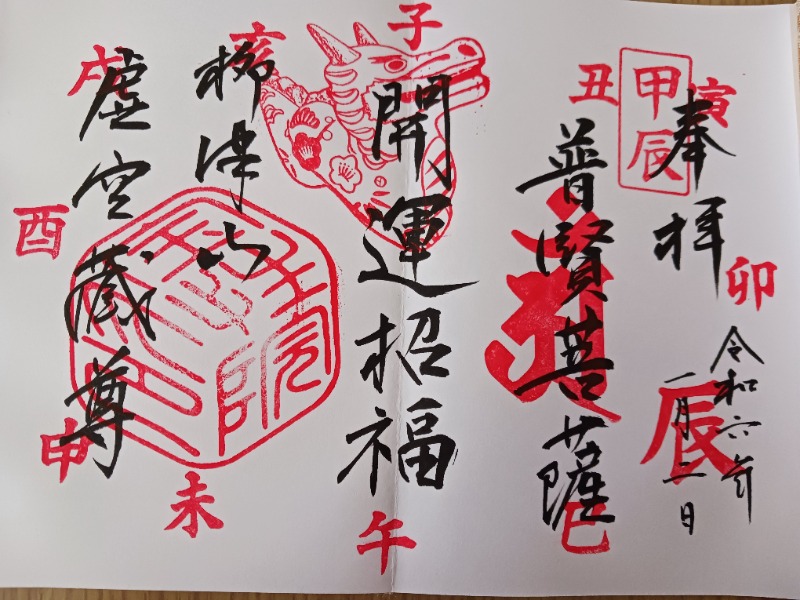 奉拝
令和六年
一月二日
普賢菩薩
開運招福
柳津山
虚空蔵尊
甲辰
子
丑
寅
卯
辰
巳
午
未
申
酉
戌
亥